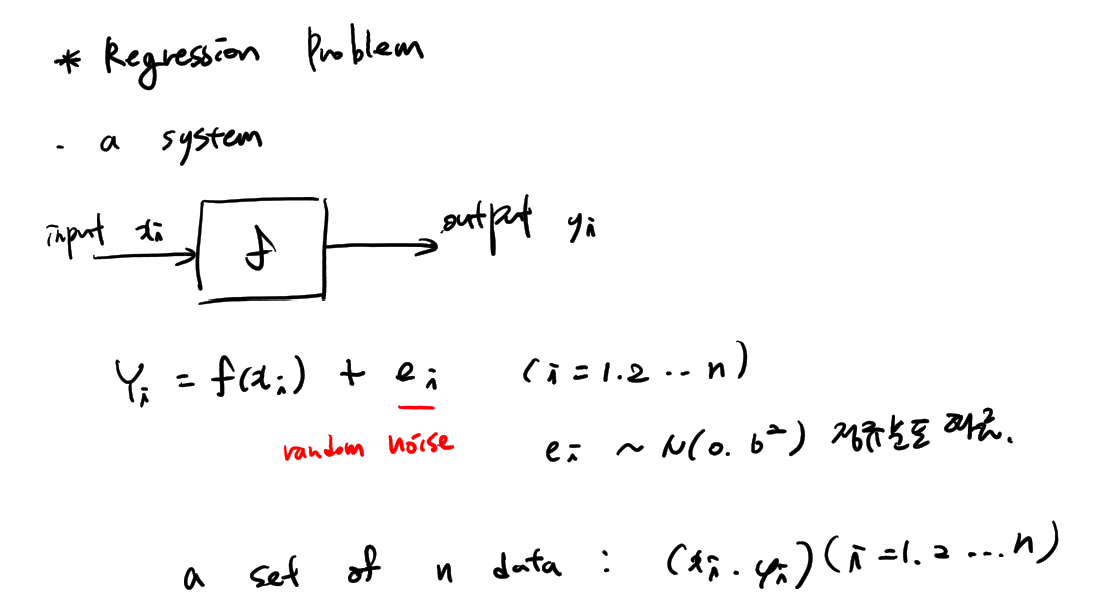 * Regression Problem
- a system
input xᵢ
f
output yᵢ
Yᵢ = f(xᵢ) + eᵢ (i = 1.2 -- n)
random noise
eᵢ ~ N(0. 6²) 정규분포 따름.
a set of n data : (xᵢ. yᵢ) (i = 1. 2 ... n)